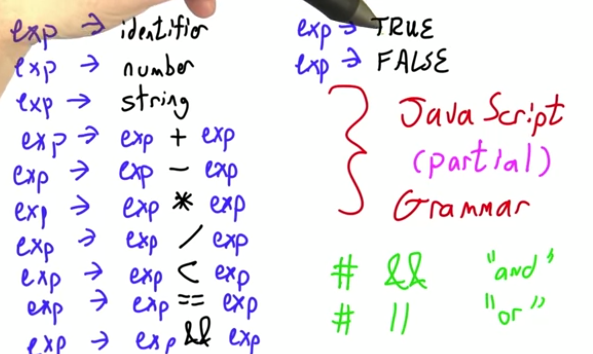 exp → identifier
exp → number
exp → string
exp → exp + exp
exp → exp - exp
exp → exp * exp
exp → exp / exp
exp → exp < exp
exp → exp == exp
exp → exp && exp
exp → TRUE
exp → FALSE
JavaScript
(partial)
Grammar
# && "and"
# || "or"